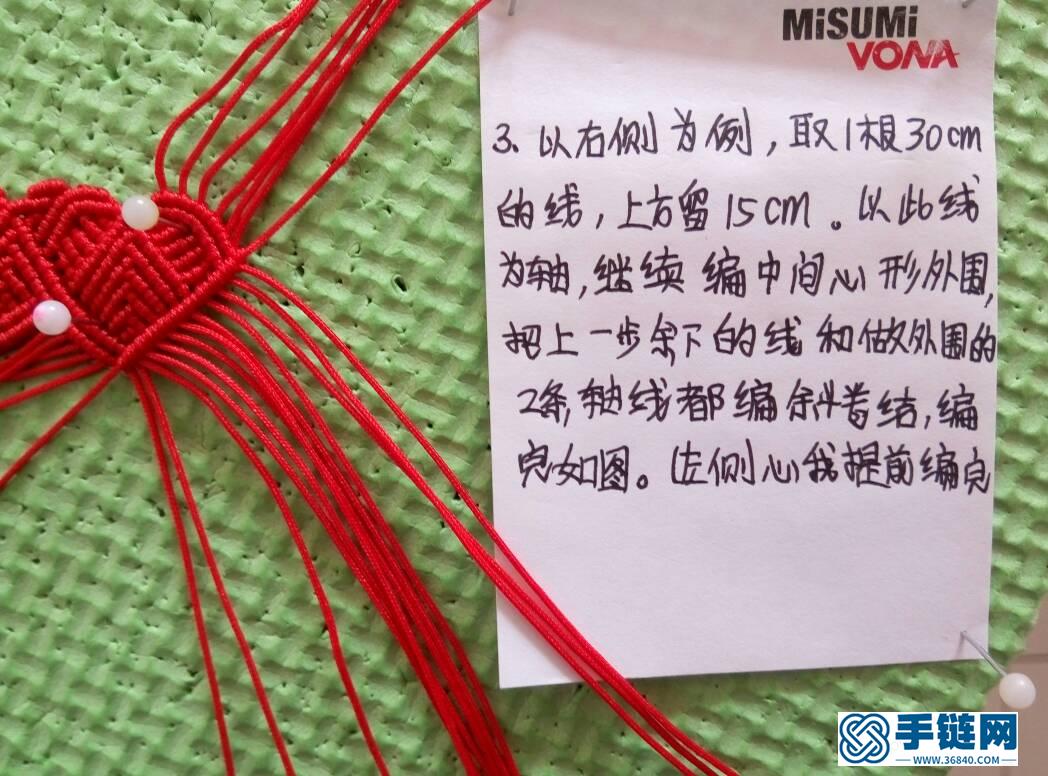 MiSUMi
VONA
3、以右侧为例，取1根30cm
的线，上方留15cm。以此线
为轴，继续编中间心形外围，
把上一步余下的线和做外围的
2条轴线都编斜卷结，编
完如图。左侧心我提前编完
手链网
WWW.36840.COM